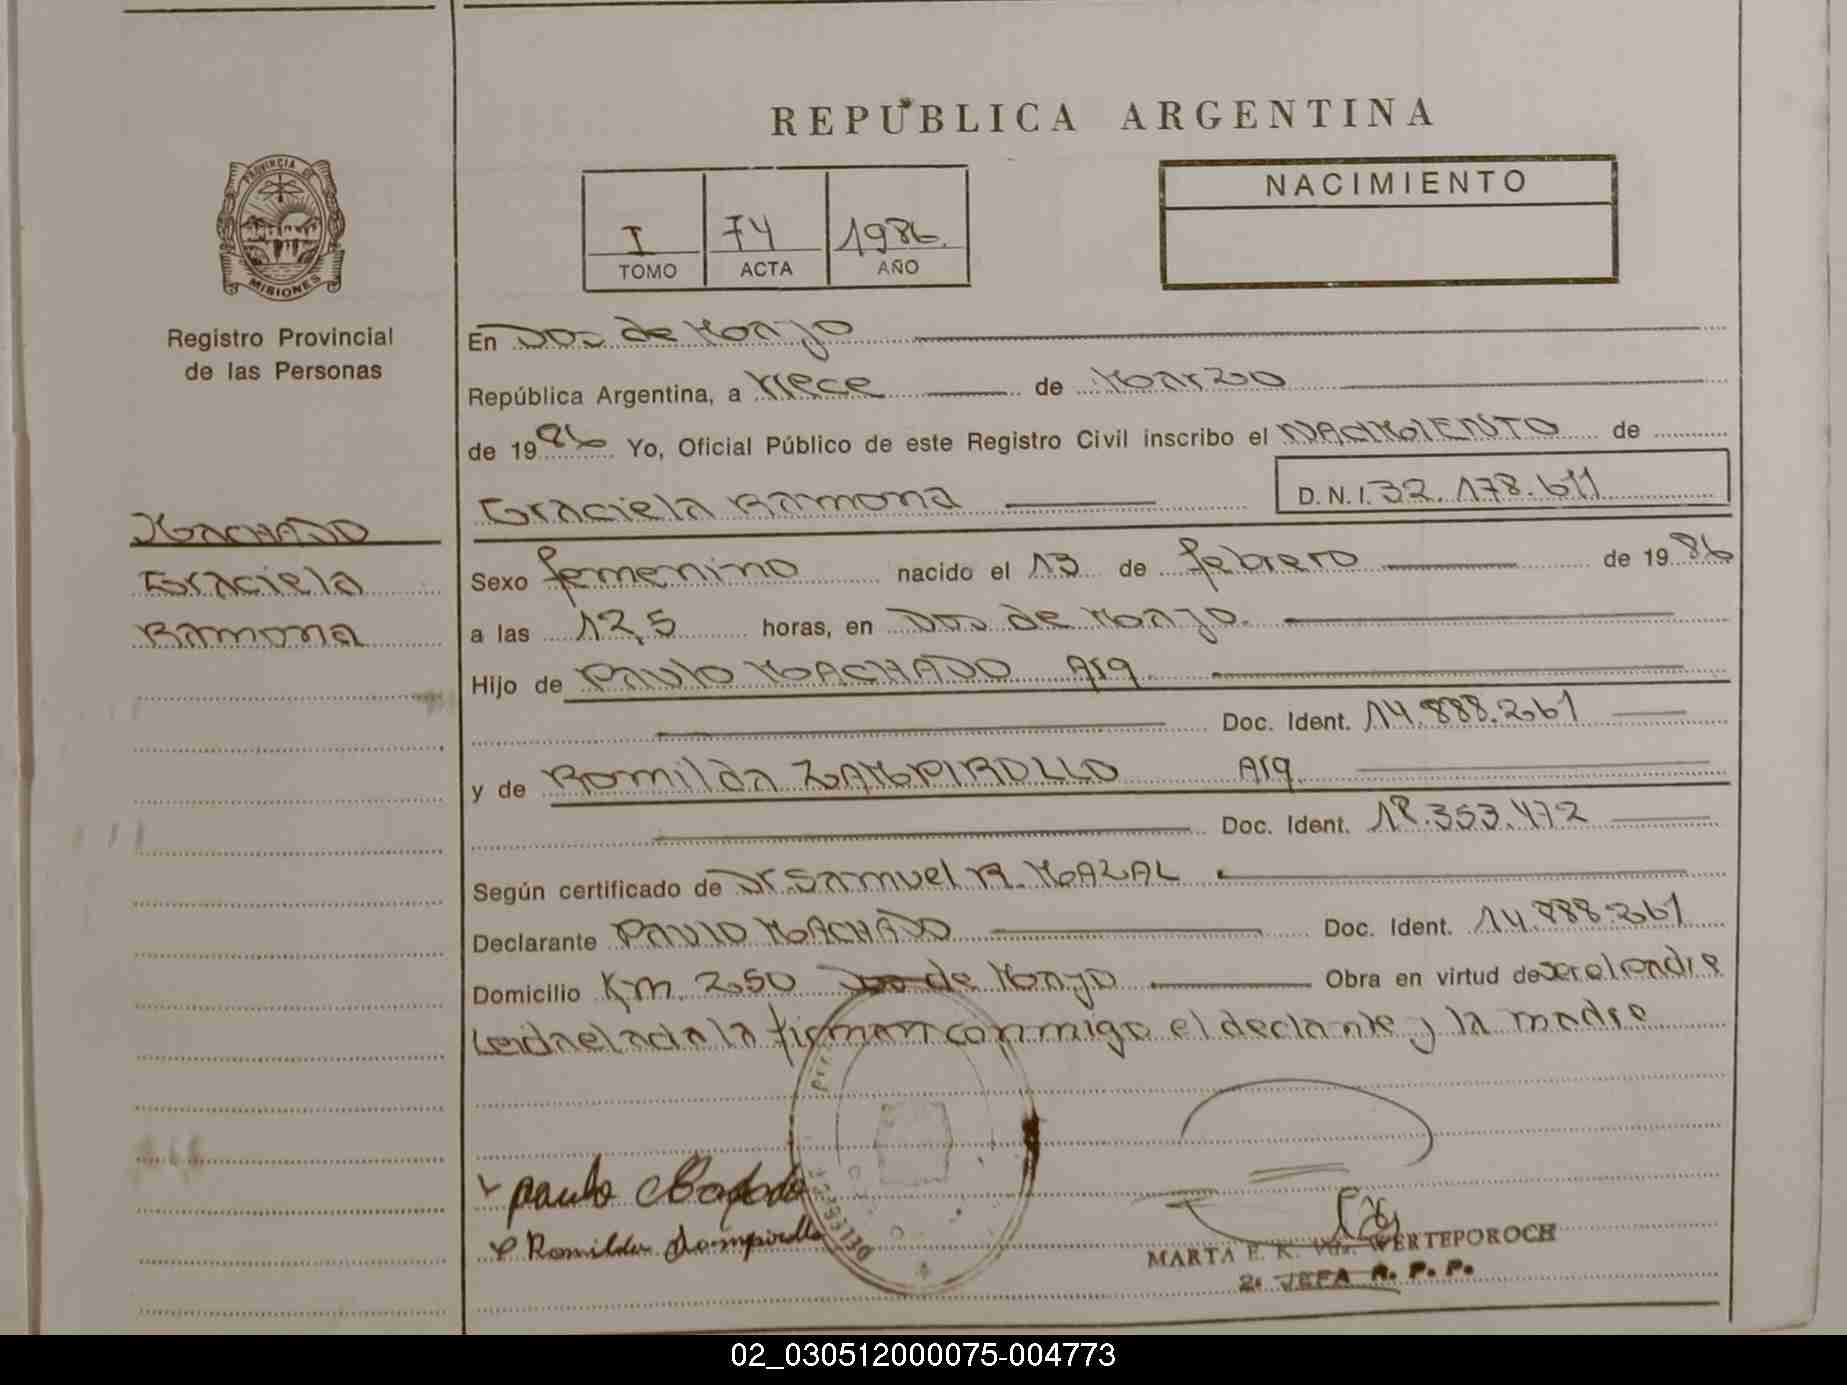 REPUBLICA ARGENTINA
PROVINCIA DE
MISIONES
Registro Provincial
de las Personas
I 74 1986
TOMO ACTA AÑO
NACIMIENTO
En Dos de Mayo
República Argentina, a trece de Marzo
de 1986 Yo, Oficial Público de este Registro Civil inscribo el NACIMIENTO de
Graciela Ramona D.N.I. 32.178.611
MACHADO
Graciela
Ramona
Sexo femenino nacido el 13 de febrero de 1986
a las 12,5 horas, en Dos de Mayo.
Hijo de PAULO MACHADO Arg
Doc. Ident. 14.888.261
y de Romilda ZAMPIROLLO Arg.
Doc. Ident. 18.353.472
Según certificado de Dr Samuel R. MAZAL
Declarante PAULO MACHADO Doc. Ident. 14.888.261
Domicilio Km. 250 Dos de Mayo Obra en virtud de ser el
Leida el acta la firman conmigo el declante y la madre
paulo Machado
Romilda Zampirollo
MARTA E. K. Vda. WERTEPOROCH
2. JEFA R. P. P.
02_030512000075-004773